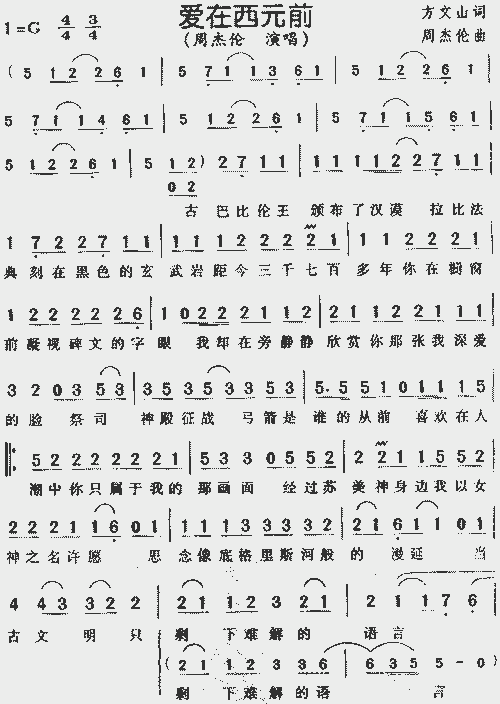 爱在西元前
1=G 4/4 3/4
(周杰伦 演唱)
方文山词
周杰伦曲
( 5 1 2 2 6 1 | 5 7 1 1 3 6 1 | 5 1 2 2 6 1 |
5 7 1 1 4 6 1 | 5 1 2 2 6 1 | 5 7 1 1 5 6 1 |
5 1 2 2 6 1 | 5 1 2 ) 2 7 1 1 | 1 1 1 1 2 2 7 1 1 |
0 2
古 巴比伦王 颁布了汉漠 拉比法
1 7 2 2 7 1 1 | 1 1 1 2 2 2 2 1 | 1 1 1 2 2 2 2
典 刻在黑色的玄 武岩距今三千七百 多年你在橱窗
1 2 2 2 2 2 6 | 1 0 2 2 2 2 1 1 2 | 2 1 1 2 2 1 1 1
前 凝视碑文的字 眼 我却在旁静静 欣赏你那张我深爱
3 2 0 3 5 3 | 3 5 3 5 3 3 5 3 | 5· 5 5 1 0 1 1 1 5
的脸 祭司 神殿征战 弓箭是 谁的从前 喜欢在人
5 2 2 2 2 2 2 1 | 5 3 3 0 5 5 2 | 2 1 1 5 5 5 2
潮中你只属于我的 那画面 经过苏 美神身边我以女
2 2 2 1 1 6 0 1 | 1 1 1 3 3 3 3 3 | 2 1 6 1 1 0 1
神之名许愿 思 念像底格里斯河般 的漫延 当
4 4 3 3 2 2 | 2 1 1 2 2 1 | 2 1 1 7 6
古文明只 剩下难解的 语言
( 2 1 1 2 3 3 6 | 6 3 5 5 - 0 )
剩下难解的语 言